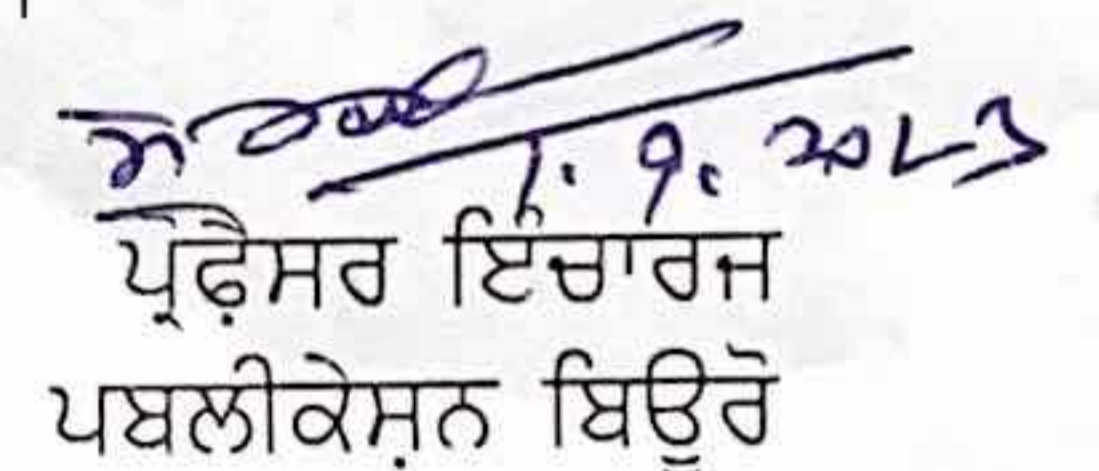 1. 9. 2023
ਪ੍ਰੋਫ਼ੈਸਰ ਇੰਚਾਰਜ
ਪਬਲੀਕੇਸ਼ਨ ਬਿਊਰੋ